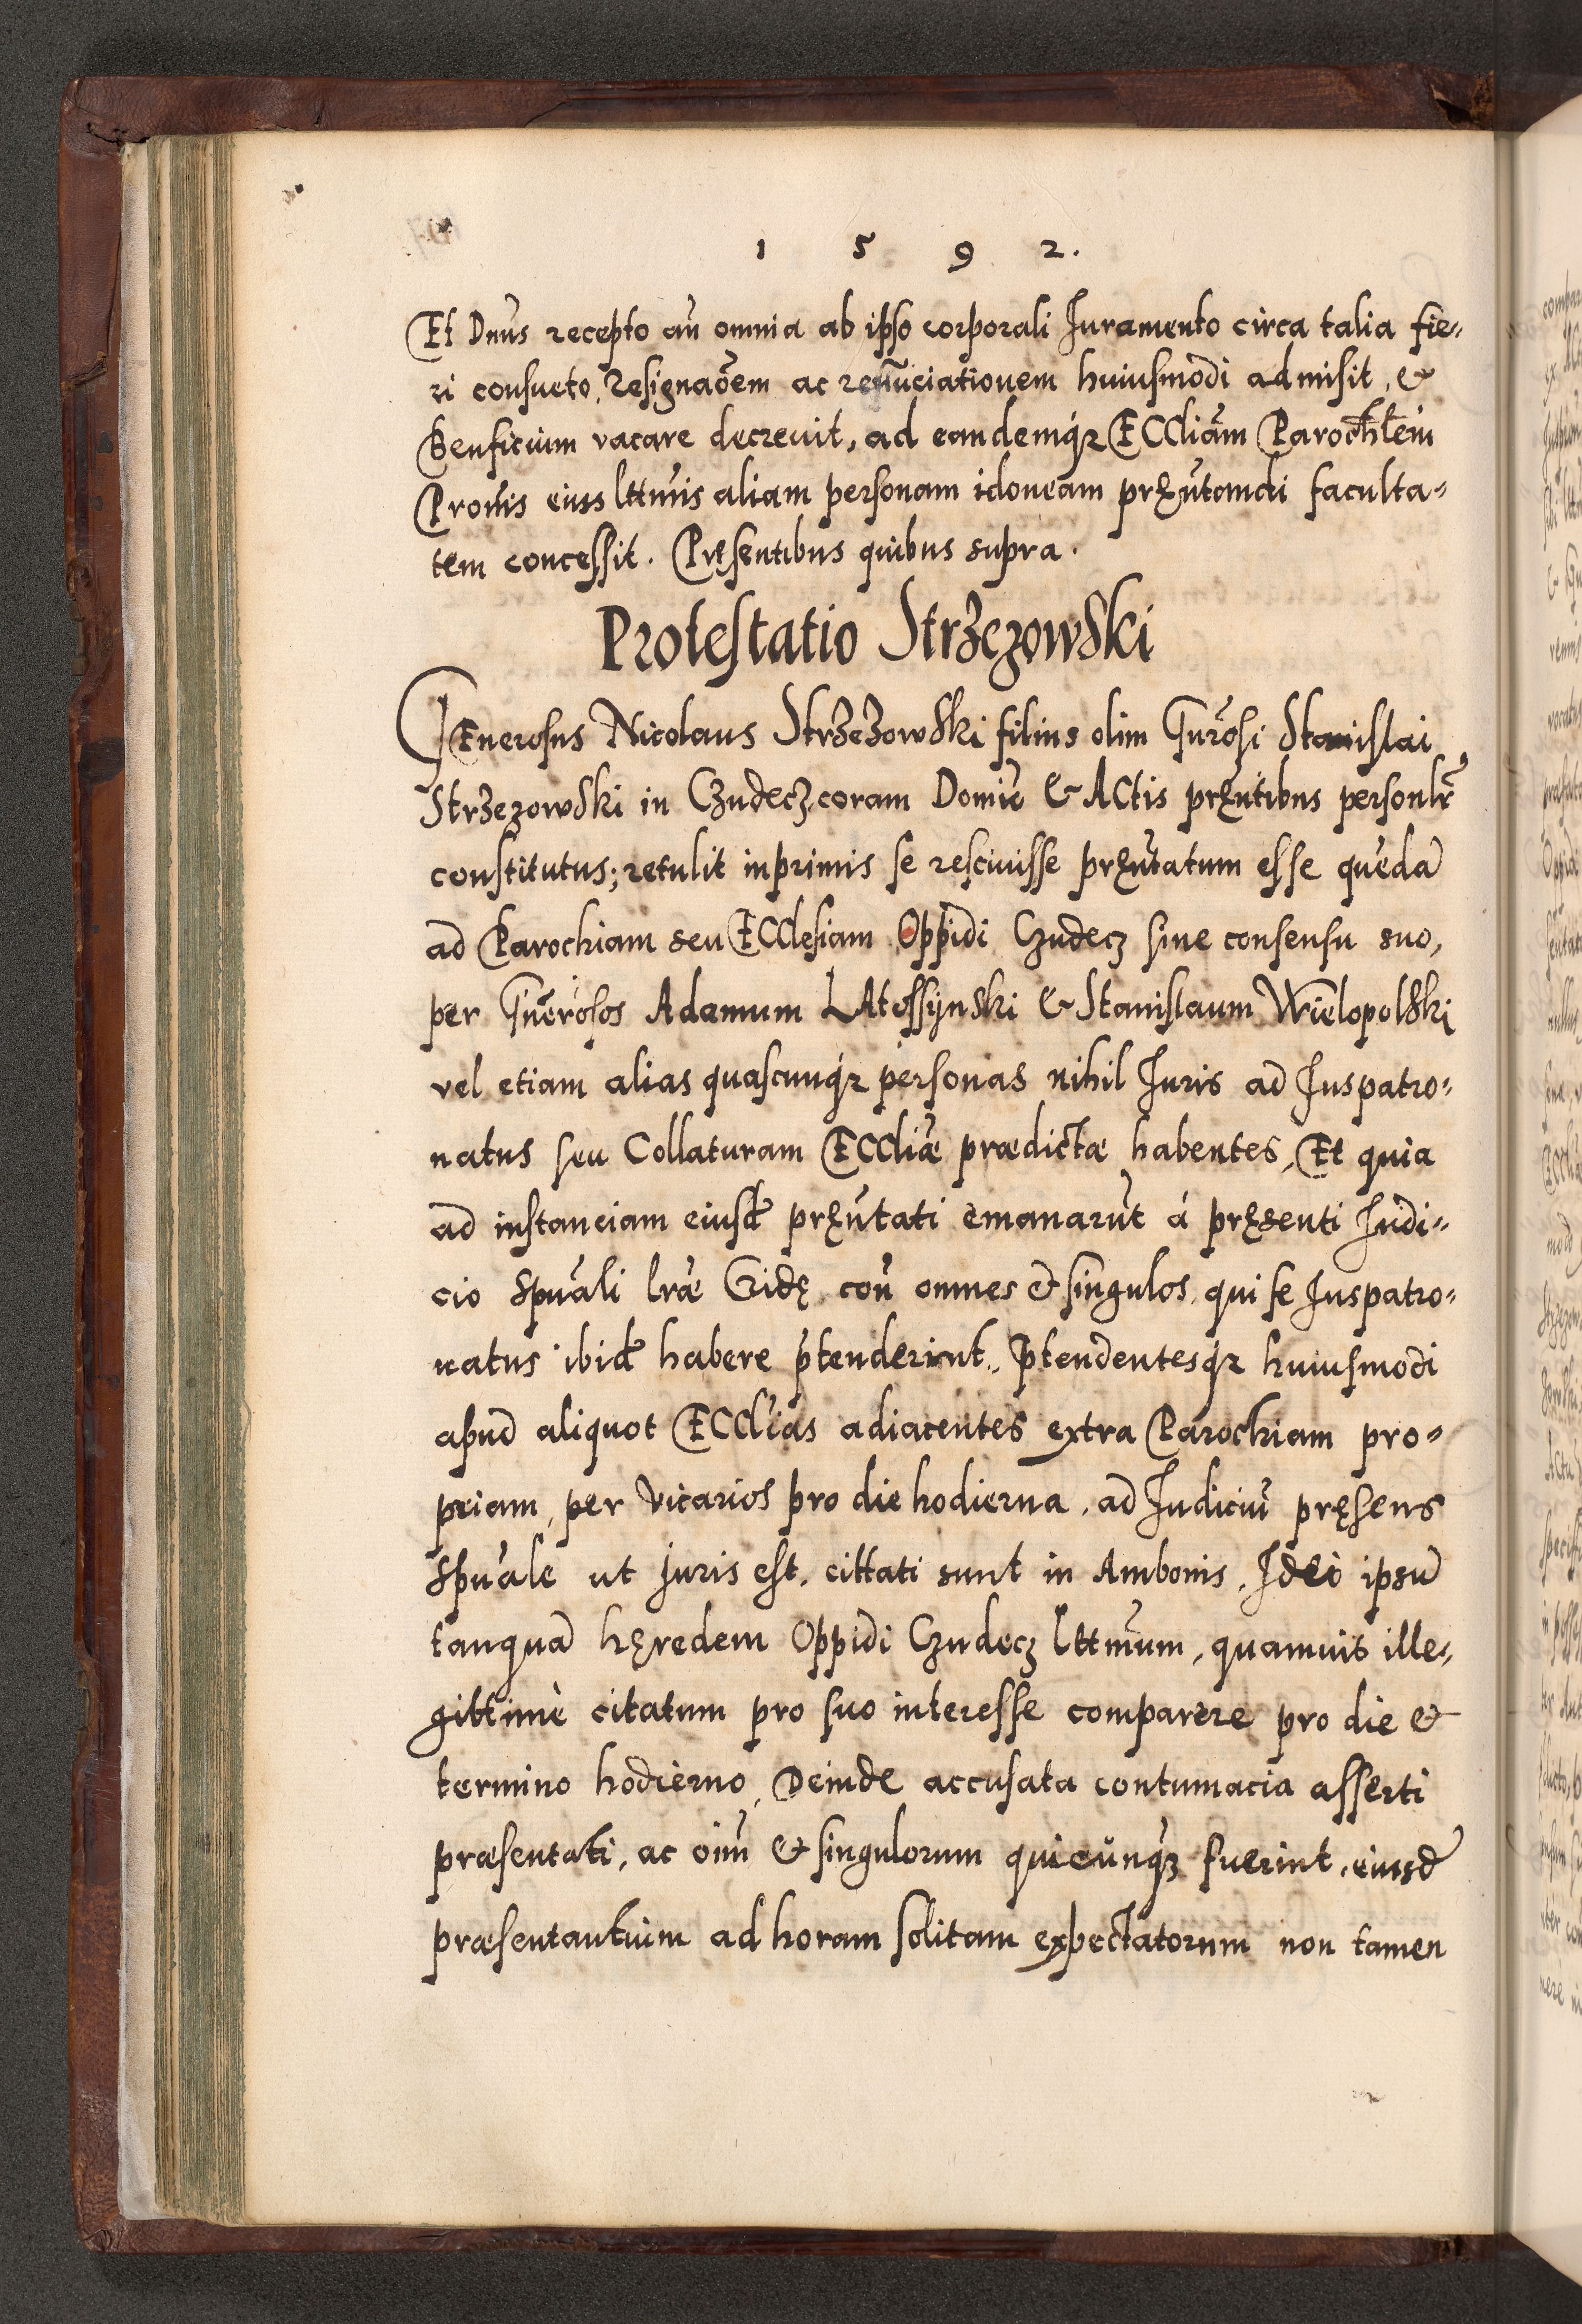 1 5 9 2.
Et Dnus recepto an̄ omnia ab ipso corporali Iuramento circa talia fie-
ri consueto, Resignaōem ac renūciationem huiusmodi admisit, &
Benficium vacare decreuit, ad eandemq́ꝫ ECCliām Parochlem
Pronis eiuss lttmis aliam personam idoneam pręn̄tandi faculta-
tem concessit. Pręsentibus quibus supra.
Protestatio Strzezowski
GEnerosus Nicolaus Strzezowski filius olim Gnrōsi Stanislai
Strzezowski in Czudecz coram Domiē & ACtis pręn̄tibus personlr̄
constitutus; retulit inprimis se resciuisse pręn̄tatum esse quēdā
ad Parochiam seu ECClesiam Oppidi Czudecz sine consensu suo,
per Gn̄erosos Adamum LAtossynski & Stanislaum Wielopolski
vel etiam alias quascunq́ꝫ personas nihil Iuris ad Iuspatro-
natus seu Collaturam ECCliæ prædictæ habentes, Et quia
ad instanciam eiusd̄ pręn̄tati emanarūt á pręsenti Iudi-
cio Spūali lrǣ Cridę, con̄ omnes & singulos, qui se Iuspatro-
natus ibid̄ habere p̄tenderint, P̄tendentesq́ꝫ huiusmodi
apud aliquot ECClias adiacentes extra Parochiam pro-
priam, per Vicarios pro die hodierna, ad Iudiciū pręsens
Spūale ut juris est, cittati sunt in Ambonis, Ideo ipsū
tanquā hęredem Oppidi Czudecz lttmum, quamuis ille-
gittimè citatum pro suo interesse comparere pro die &
termino hodierno, Deinde accusata contumacia asserti
præsentati, ac oim̄ & singulorum quicunq́ꝫ fuerint, eiusd̄
præsentantium ad horam solitam expectatorum non tamen